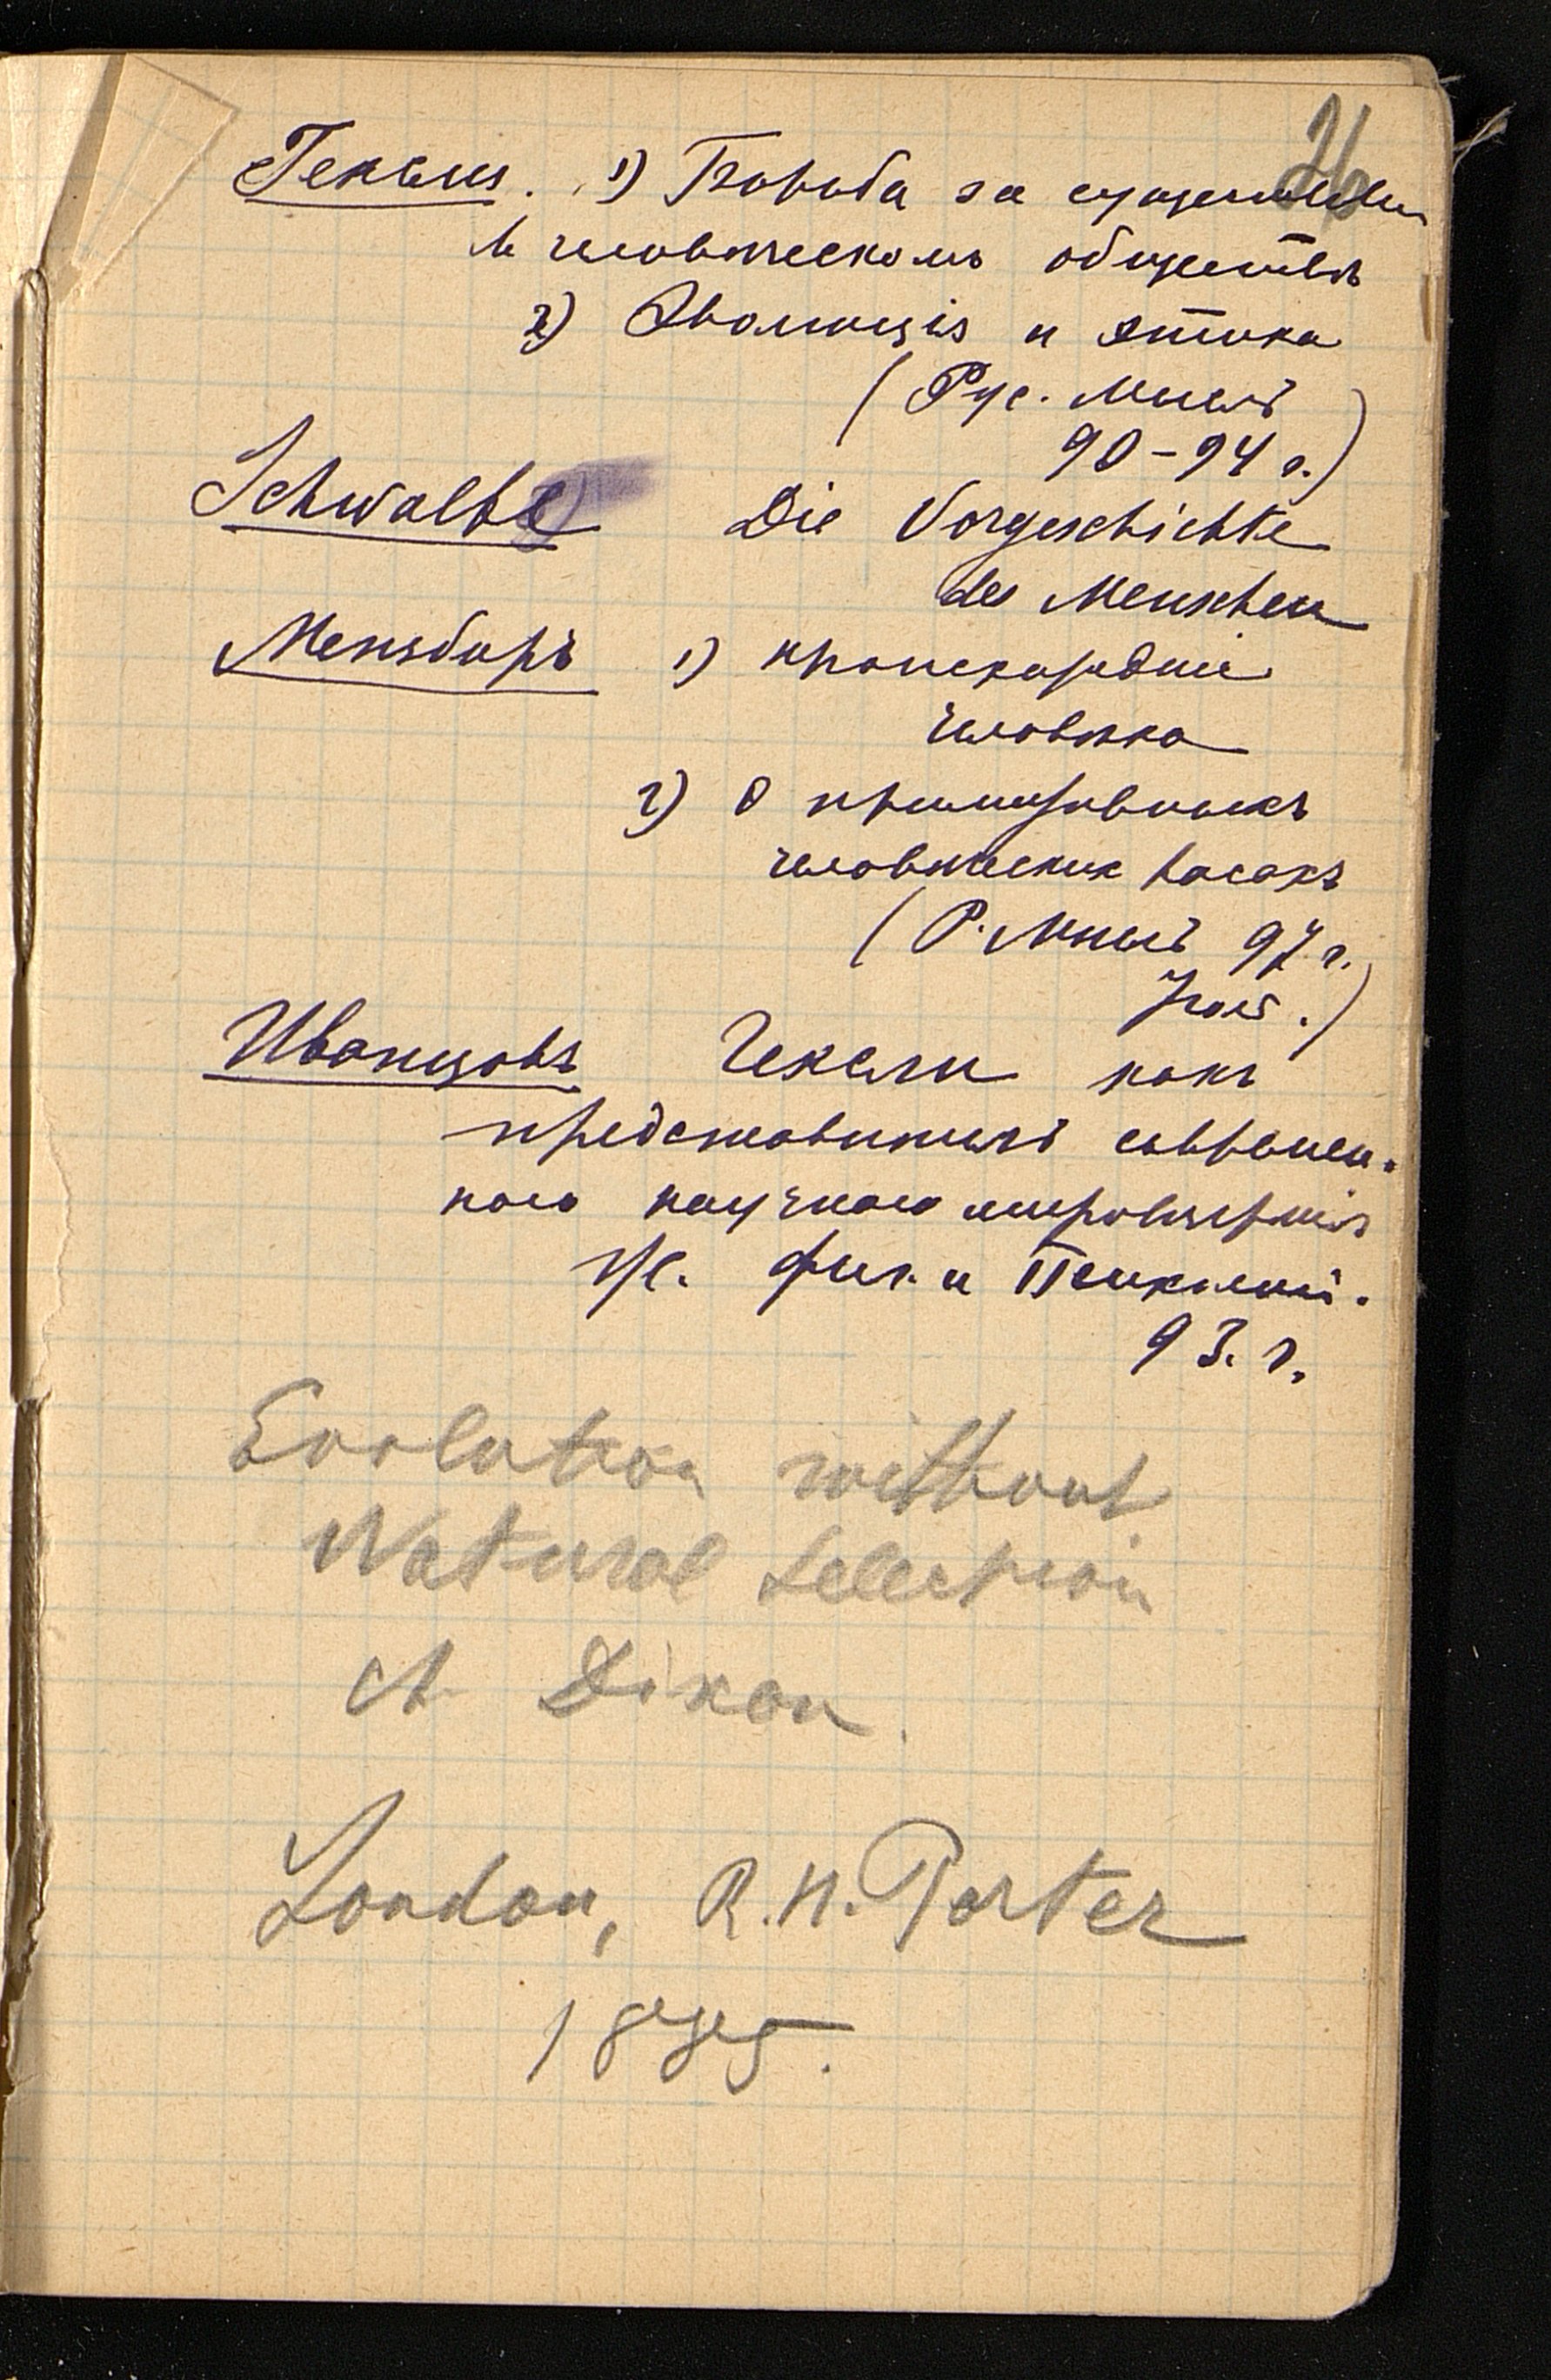 26
Гексли. 1) Борьба за существован
в человѣческомъ обществѣ
2) Эволюція и этика
(Рус. Мысль
90–94 г.)
Schwalbe Die Vorgeschichte
des Menschen
Мензбиръ 1) происхожденіе
человѣка
2) О
человѣческих расахъ
(Р. Мысль 97 г.
Іюль.)
Иванцовъ Гексли какъ
представитель современ-
наго научнаго міровоззрѣнія
Фил. и Психологіи.
93. г.
Evolution without
Natural Selection
A. Dixon.
London, R.H. Porter
1885.